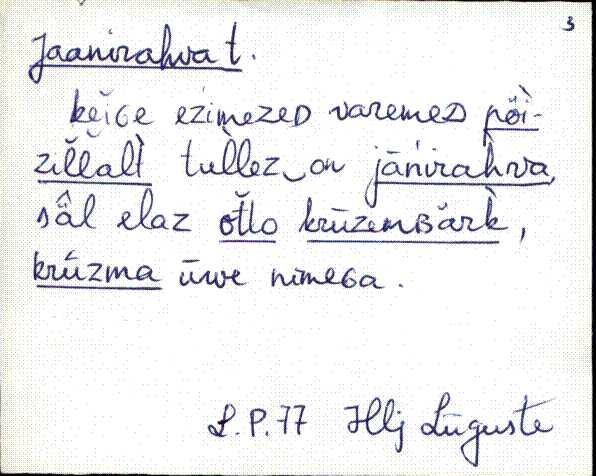 3
Jaanirahva t.
keiGe ezimezeD varemeD pöi-
zillalt tullez‿on jānirahva,
säl elaz otto krūzemʙärk,
krūzma ūwe nimega.
L.P. 77 Illj Lüguste